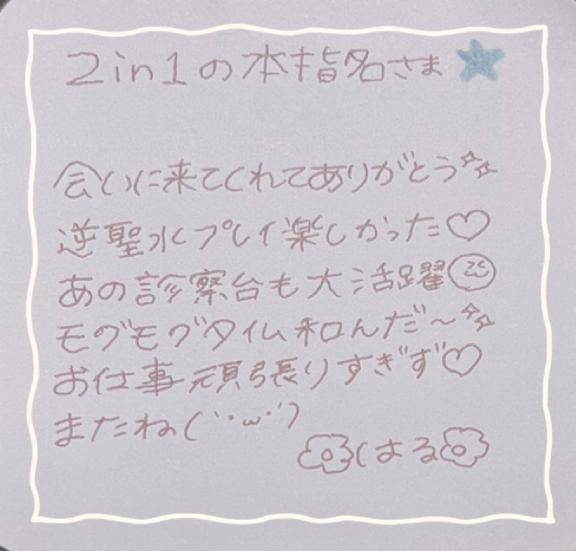 2in1の本指名さま
会いに来てくれてありがとう
逆聖水プレイ楽しかった♡
あの診察台も大活躍
モグモグタイム和んだ〜
お仕事頑張りすぎず♡
またね(´･ω･`)
はる